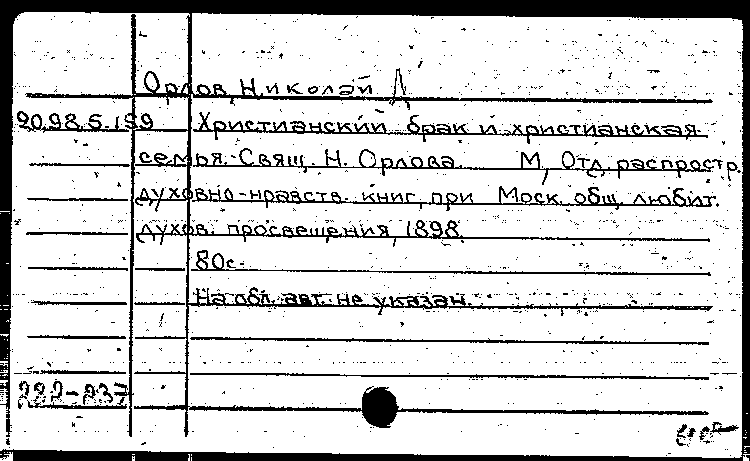 Орлов, Николай Д
20.98.5.159 Христианский брак и христианская
семья.-Свящ. Н. Орлова. М, Отд. распростр.
духовно-нравств. книг, при Моск. общ. любит.
духов. просвещения, 1898.
80с.
На обл. авт. не указан.
282-237